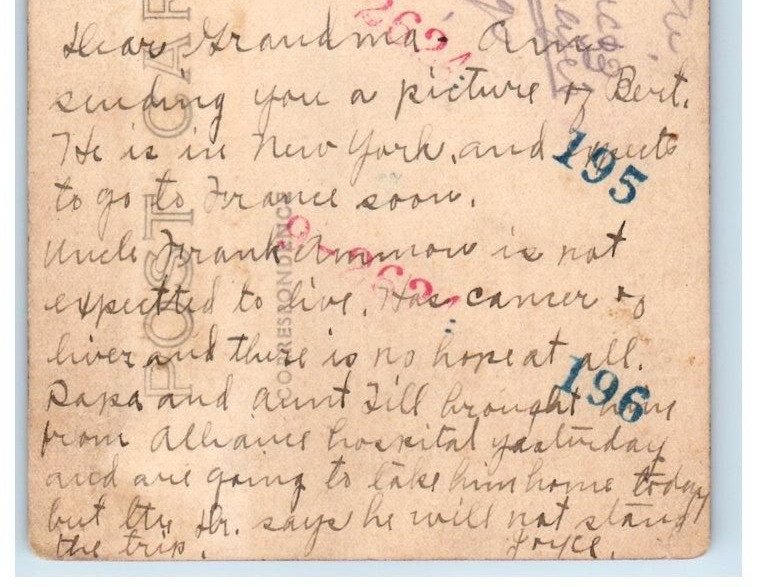 Dear Grandma - Am
sending you a picture of Bert.
He is in New York, and expects
to go to France soon.
Uncle Frank Ammon is not
expectted to live. Has cancer
liver and there is no hope at all.
Papa and Aunt Till brought him
from Alliance hospital yasturday
and are going to take him home today
but the Dr. says he will not stand
the trip. Joyce.
POST CAR
CORRESPONDENCE
195
196